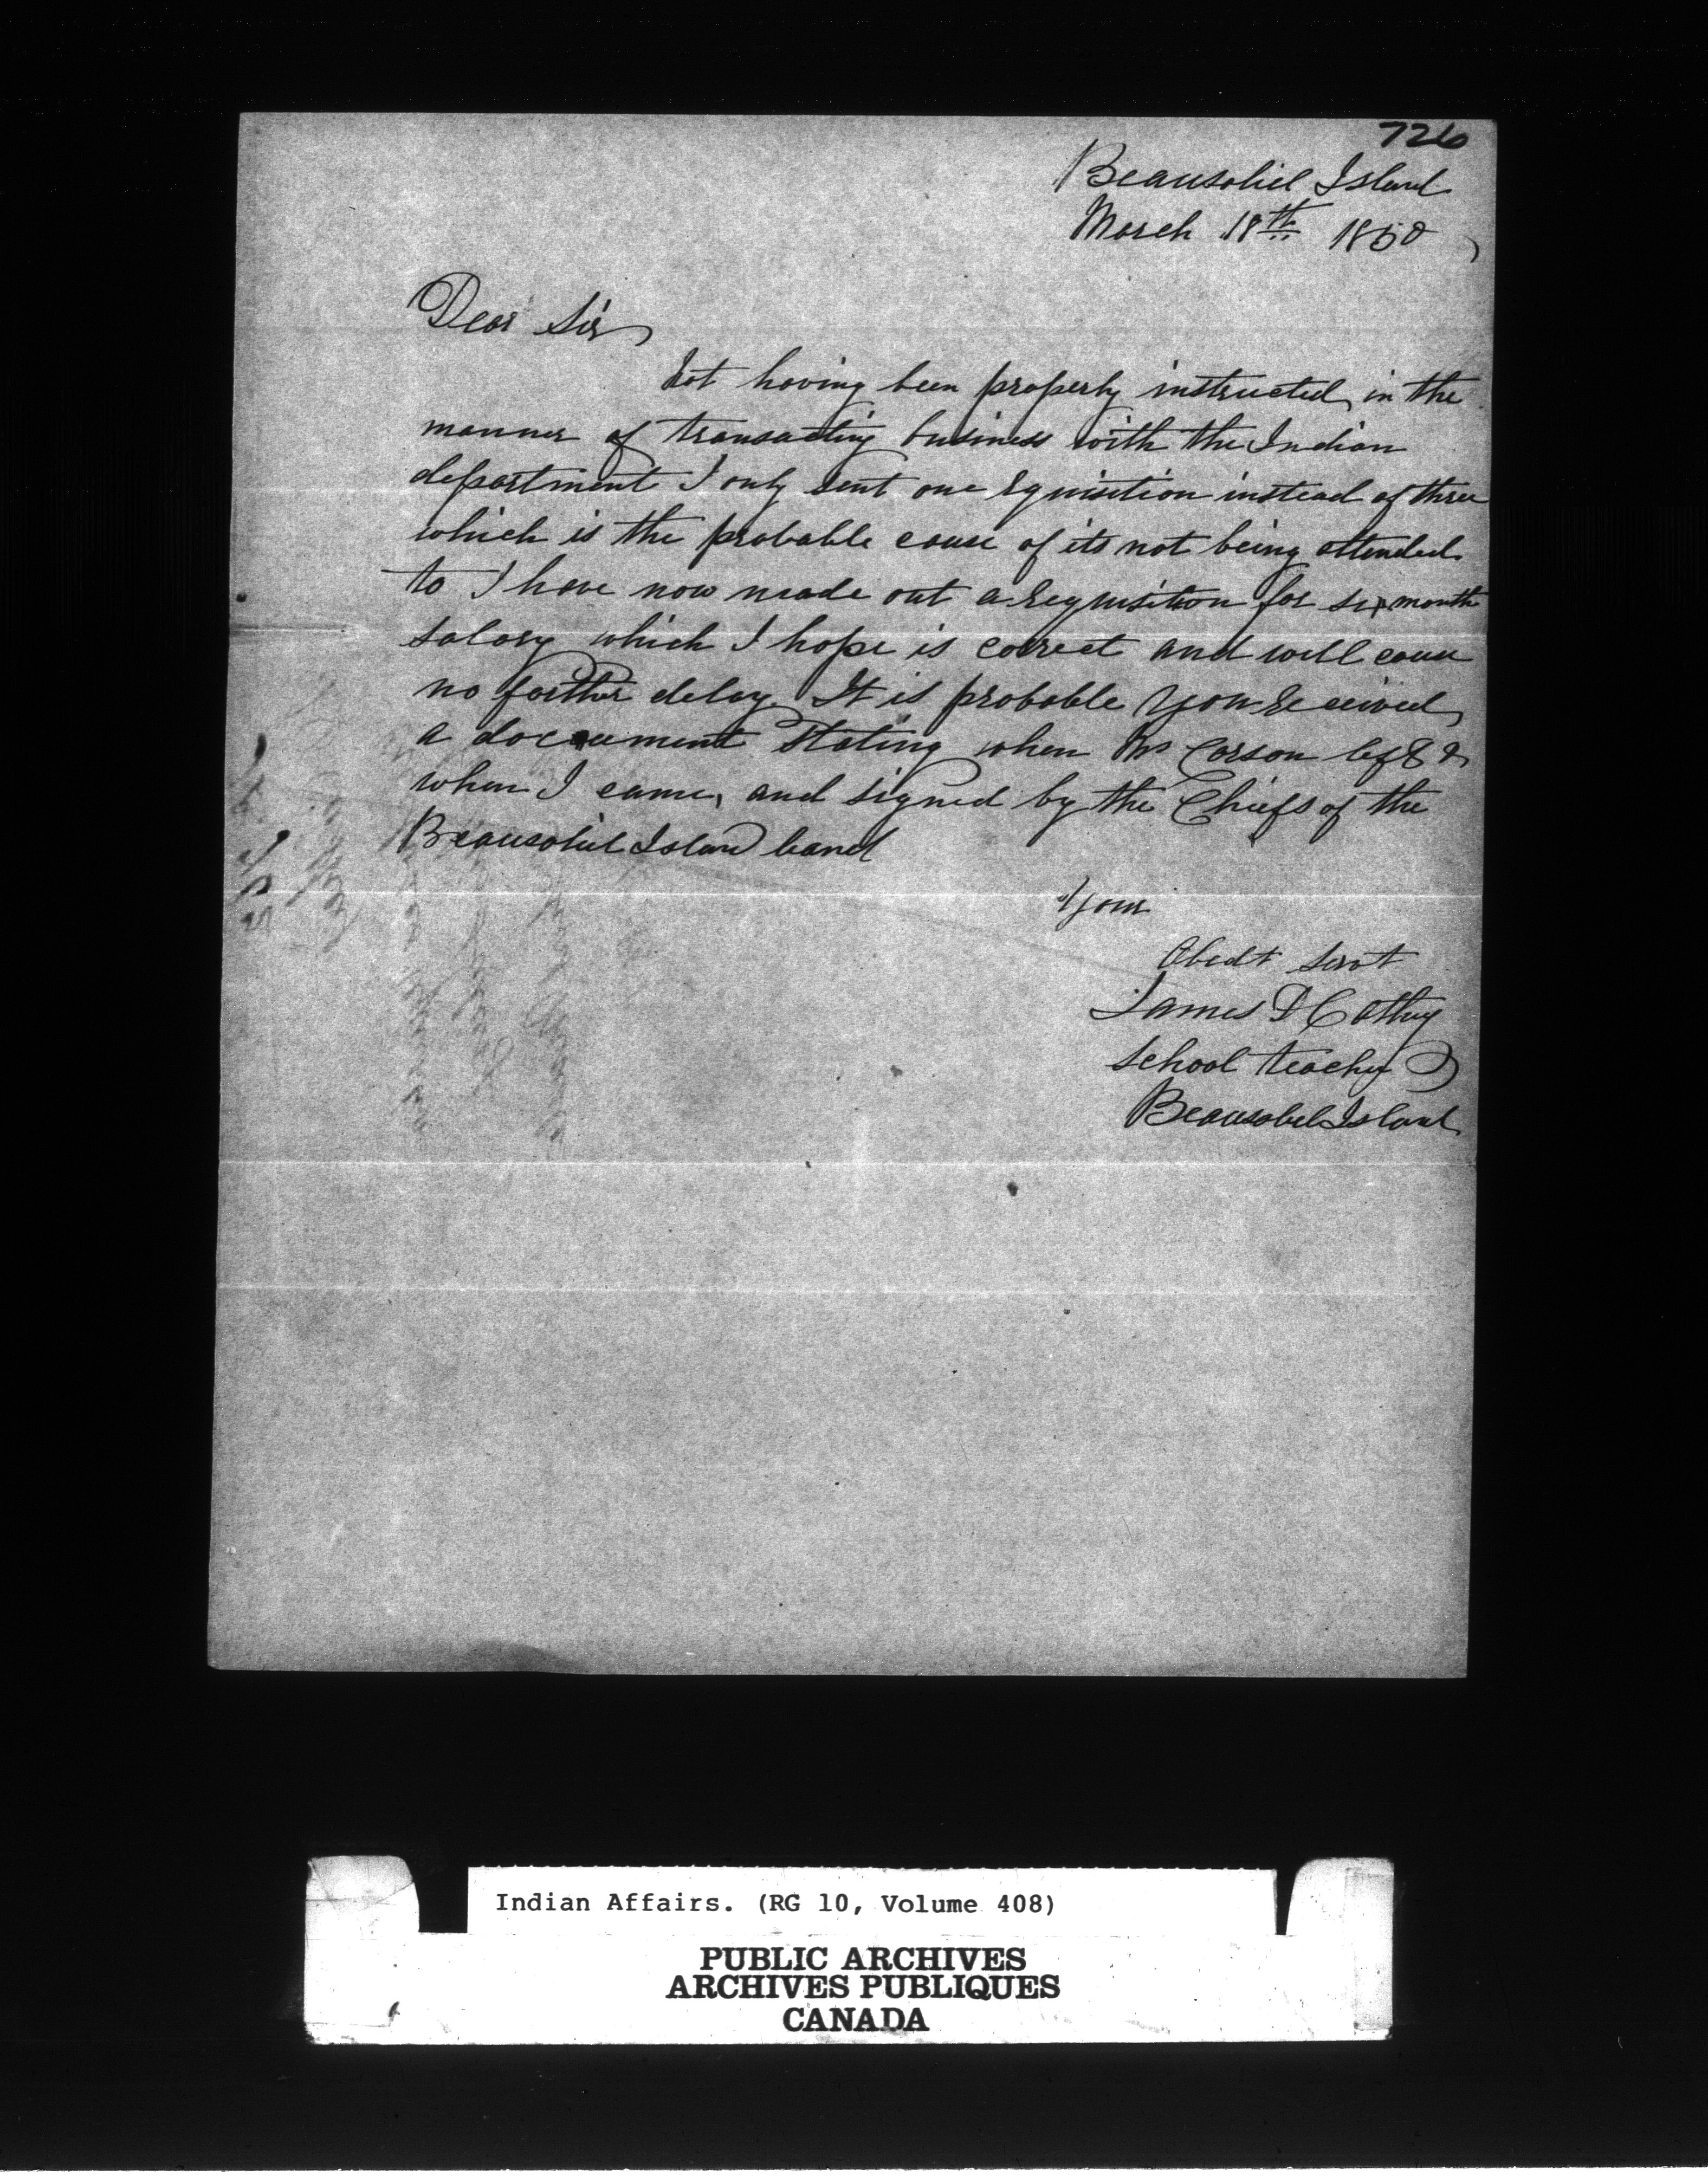 726
Beausoliel Island
March 18th 1850
Dear Sir
Not having been properly instructed in the
manner of transacting business with the Indian
department I only sent one requisition instead of three
which is the probable cause of its not being attended
to I have now made out a requisition for six month
salary which I hope is correct and will cause
no further delay. It is probable you received
a doccument stating when Mr Corson left &
when I came, and signed by the Chiefs of the
Beausoliel Island band
Your
Obedt Servt
James D Cathey
School teacher
Beausoliel Island
Indian Affairs. (RG 10, Volume 408)
PUBLIC ARCHIVES
ARCHIVES PUBLIQUES
CANADA